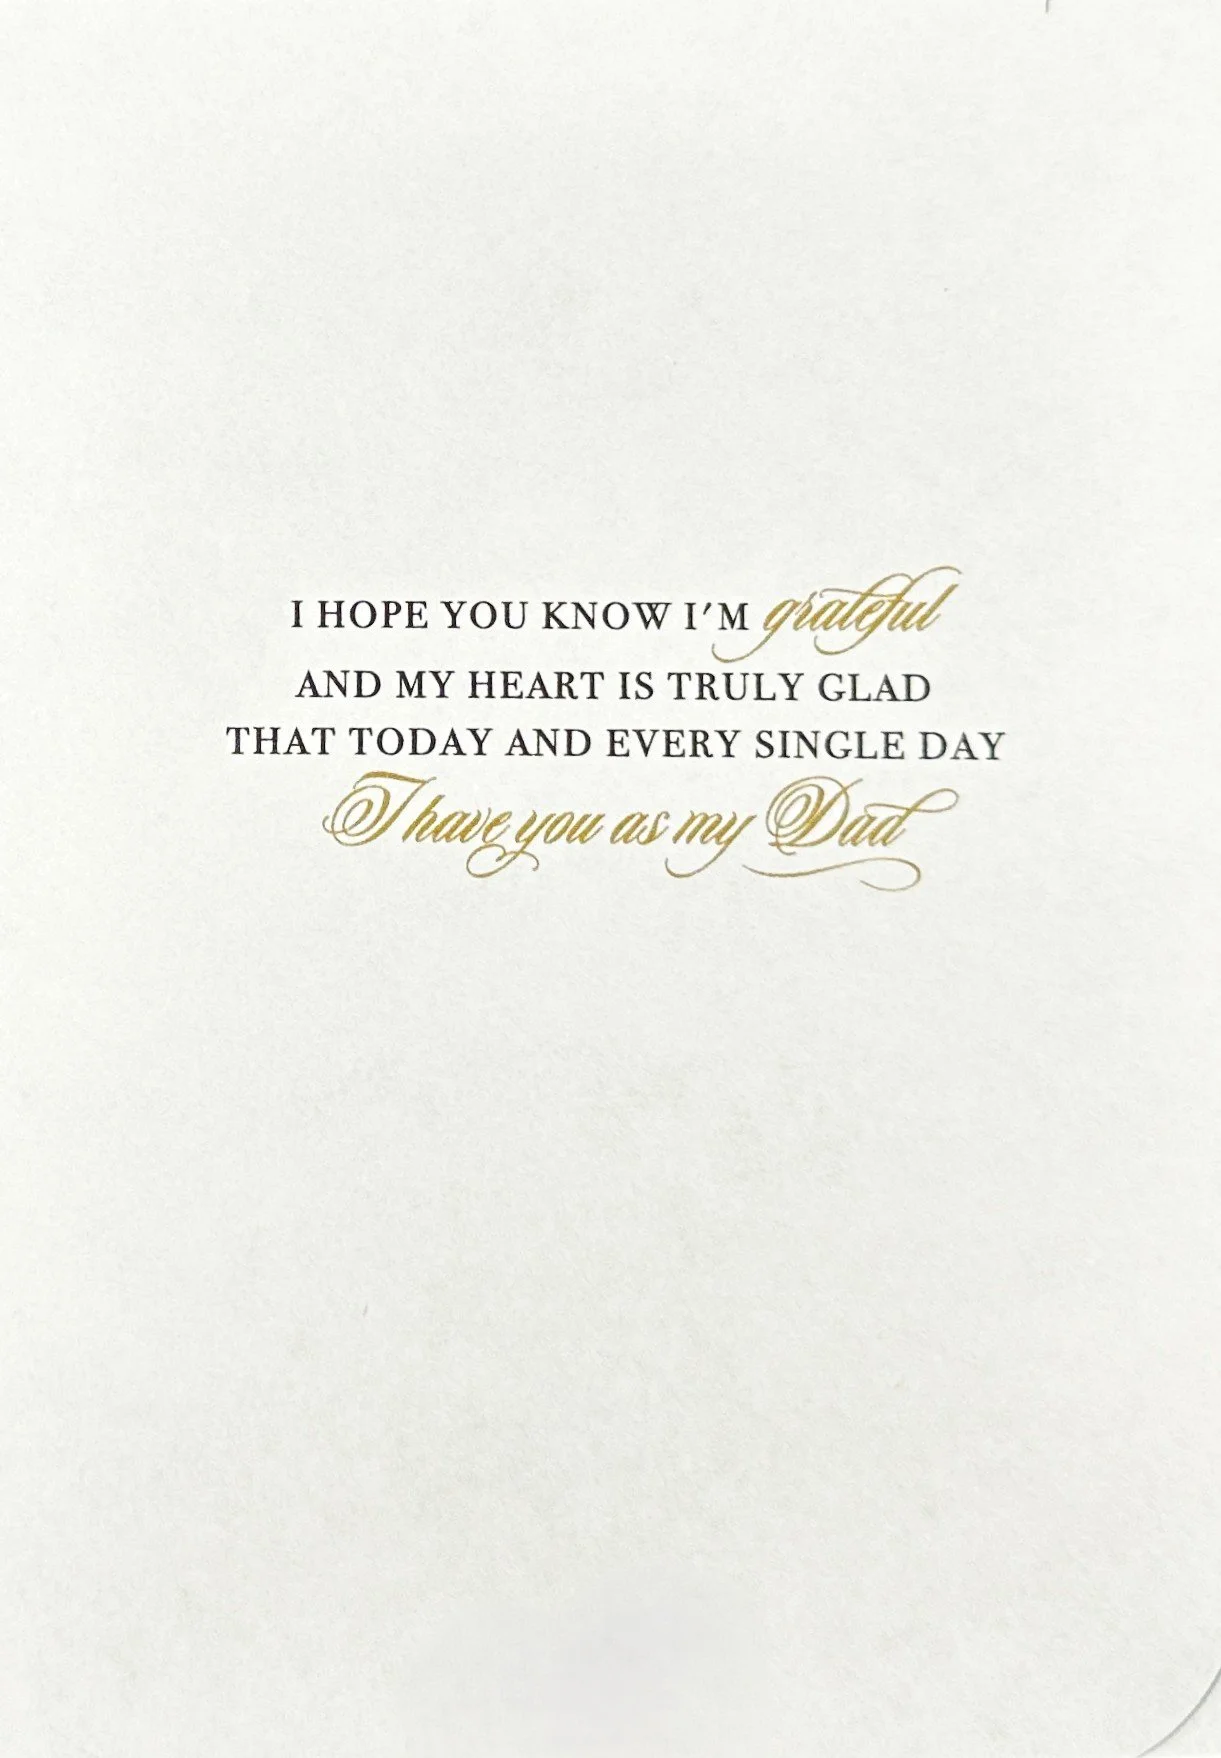 I HOPE YOU KNOW I'M grateful
AND MY HEART IS TRULY GLAD
THAT TODAY AND EVERY SINGLE DAY
I have you as my Dad